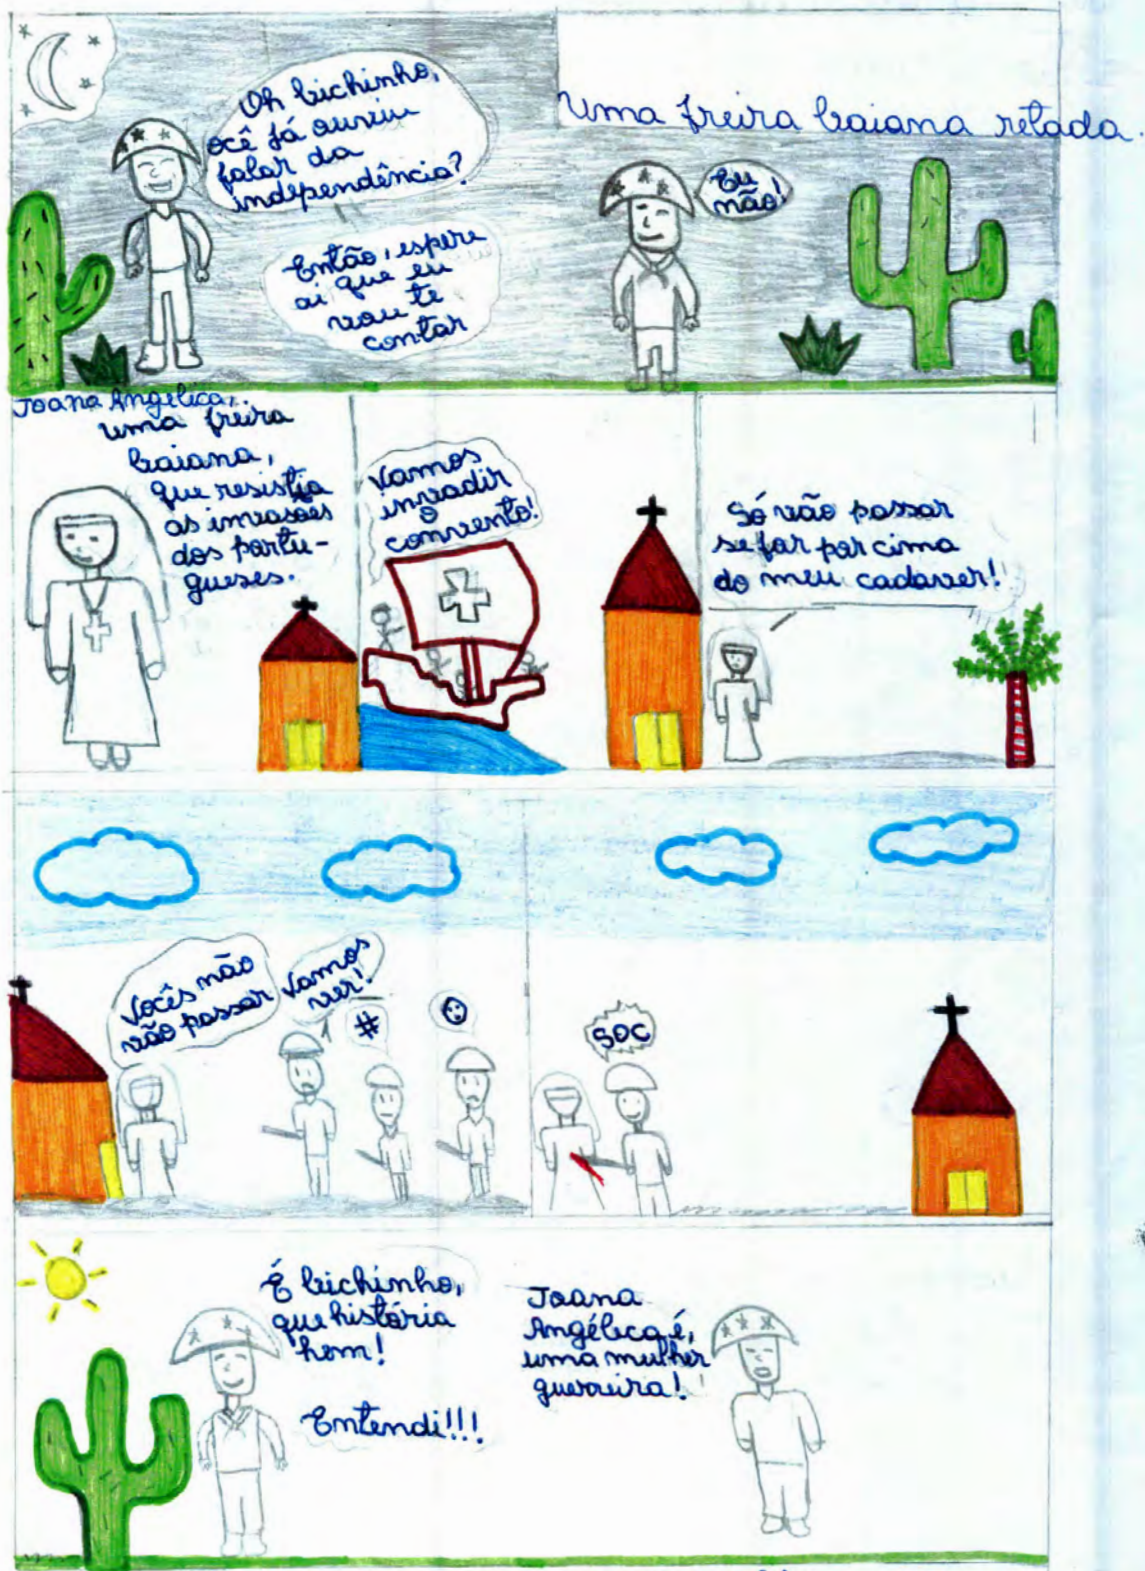 Uma freira baiana retada.
Oh bichinho,
ocê já ouviu
falar da
independência?
Eu
não!
Então, espere
ai que eu
vou te
contar
Joana Angélica,
uma freira
baiana,
que resistia
as invasões
dos portu-
gueses.
Vamos
invadir
o
convento!
Só vão passar
se for por cima
do meu cadaver!
Vocês não
vão passar
Vamos
ver!
#
SOC
É bichinho,
que história
hem!
Entendi!!!
Joana
Angélica é,
uma mulher
guerreira!